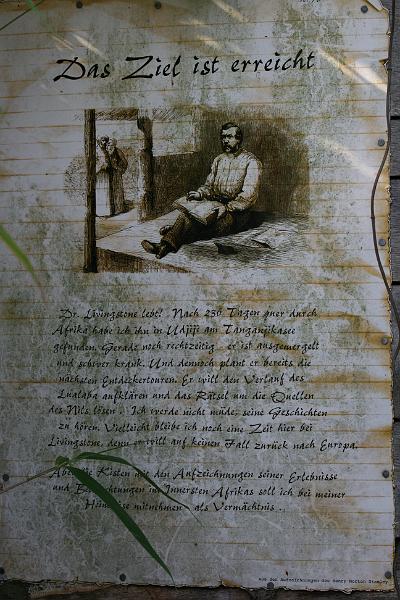 Das Ziel ist erreicht
Dr. Livingstone lebt! Nach 236 Tagen quer durch
Afrika habe ich ihn in Udjiji am Tanganjikasee
gefunden. Gerade noch rechtzeitig - er ist ausgemergelt
und schwer krank. Und dennoch plant er bereits die
nächsten Entdeckertouren. Er will den Verlauf des
Lualaba aufklären und das Rätsel um die Quellen
des Nils lösen. Ich werde nicht müde, seine Geschichten
zu hören. Vielleicht bleibe ich noch eine Zeit hier bei
Livingstone, denn er will auf keinen Fall zurück nach Europa.
Aber die Kisten mit den Aufzeichnungen seiner Erlebnisse
und Beobachtungen im Innersten Afrikas soll ich bei meiner
Heimreise mitnehmen - als Vermächtnis..
Aus den Aufzeichnungen des Henry Morton Stanley